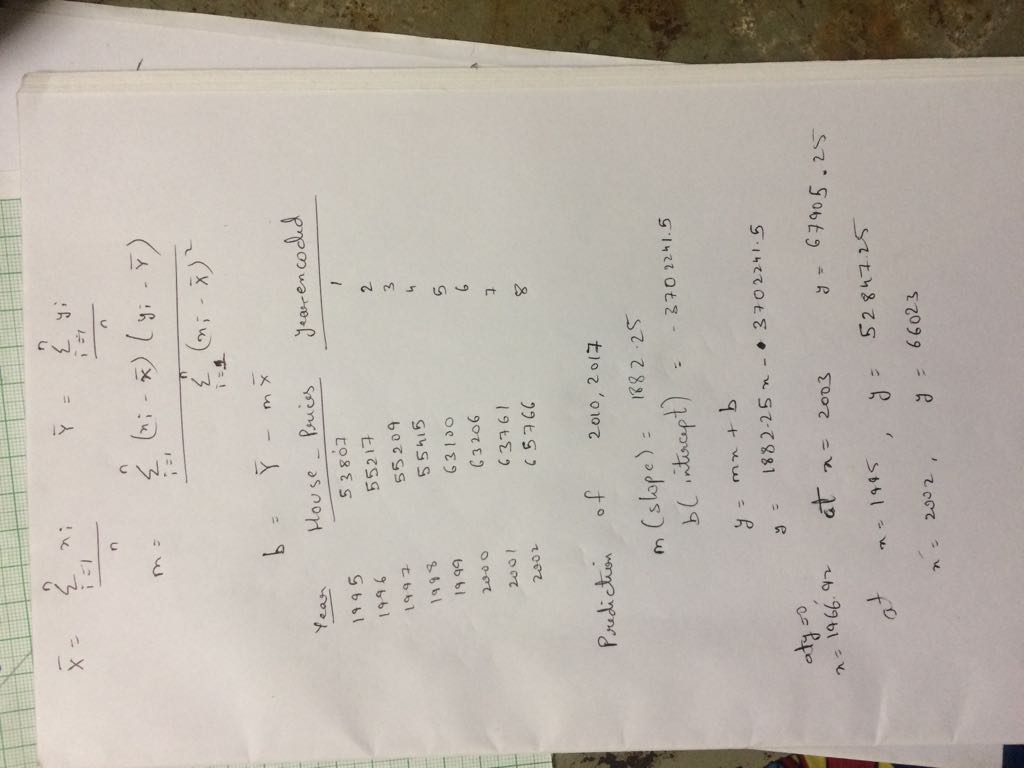 X̄ = n Σ i=1 xi / n    Ȳ = n Σ i=1 yi / n
m = n Σ i=1 (xi - x̄) (yi - Ȳ) / n Σ i=1 (xi - x̄)²
b = Ȳ - m x̄
Year House_Prices Year encoded
1995 53807 1
1996 55217 2
1997 55209 3
1998 55415 4
1999 63100 5
2000 63206 6
2001 63761 7
2002 65766 8
Prediction of 2010, 2017
m (slope) = 1882.25
b( intercept) = - 3702241.5
y = mx + b
y = 1882.25 x - 3702241.5
at y=0
x = 1966.92 at x = 2003 y = 67905.25
at x = 1995, y = 52847.25
x = 2002, y = 66023